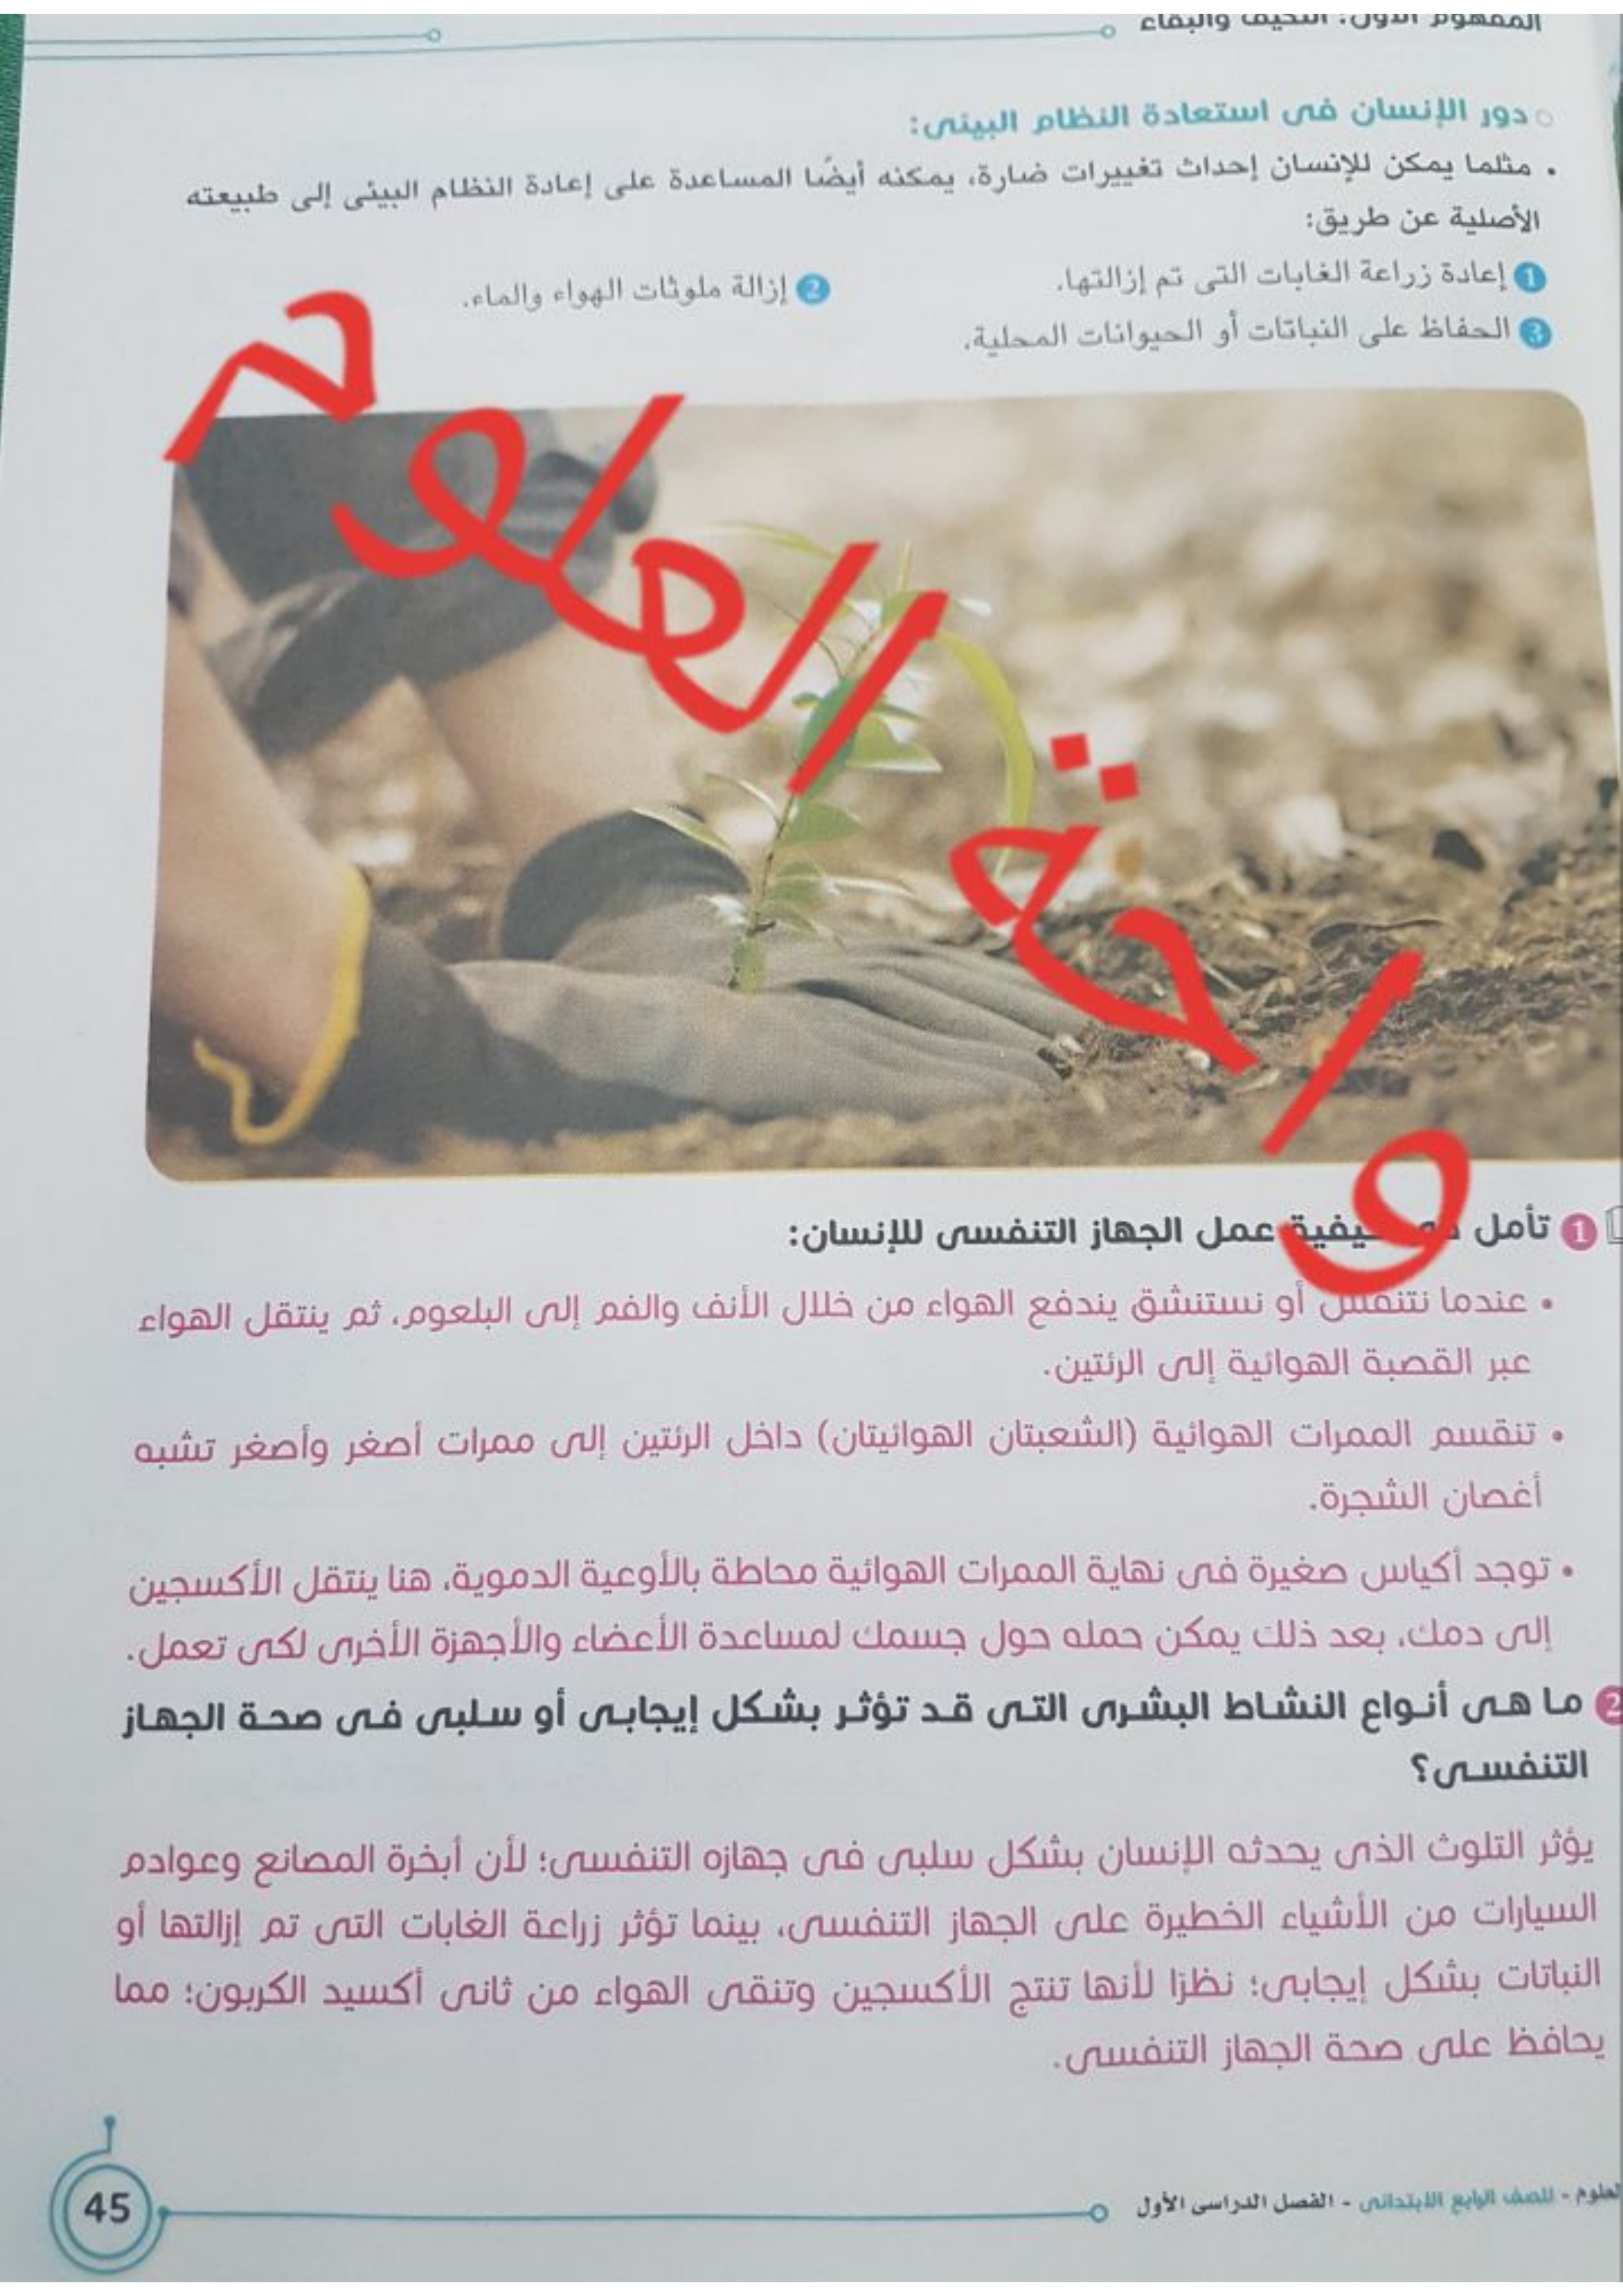 المفهوم الأول: التكيف والبقاء
دور الإنسان فى استعادة النظام البيئى:
• مثلما يمكن للإنسان إحداث تغييرات ضارة، يمكنه أيضًا المساعدة على إعادة النظام البيئى إلى طبيعته
الأصلية عن طريق:
1 إعادة زراعة الغابات التى تم إزالتها.
2 إزالة ملوثات الهواء والماء.
3 الحفاظ على النباتات أو الحيوانات المحلية.
1 تأمل كيفية عمل الجهاز التنفسى للإنسان:
• عندما نتنفس أو نستنشق يندفع الهواء من خلال الأنف والفم إلى البلعوم، ثم ينتقل الهواء
عبر القصبة الهوائية إلى الرئتين.
• تنقسم الممرات الهوائية (الشعبتان الهوائيتان) داخل الرئتين إلى ممرات أصغر وأصغر تشبه
أغصان الشجرة.
• توجد أكياس صغيرة فى نهاية الممرات الهوائية محاطة بالأوعية الدموية، هنا ينتقل الأكسجين
إلى دمك، بعد ذلك يمكن حمله حول جسمك لمساعدة الأعضاء والأجهزة الأخرى لكى تعمل.
2 ما هى أنواع النشاط البشرى التى قد تؤثر بشكل إيجابى أو سلبى فى صحة الجهاز
التنفسى؟
يؤثر التلوث الذى يحدثه الإنسان بشكل سلبى فى جهازه التنفسى؛ لأن أبخرة المصانع وعوادم
السيارات من الأشياء الخطيرة على الجهاز التنفسى، بينما تؤثر زراعة الغابات التى تم إزالتها أو
النباتات بشكل إيجابى؛ نظرًا لأنها تنتج الأكسجين وتنقى الهواء من ثانى أكسيد الكربون؛ مما
يحافظ على صحة الجهاز التنفسى.
العلوم - للصف الرابع الابتدائى - الفصل الدراسى الأول
45